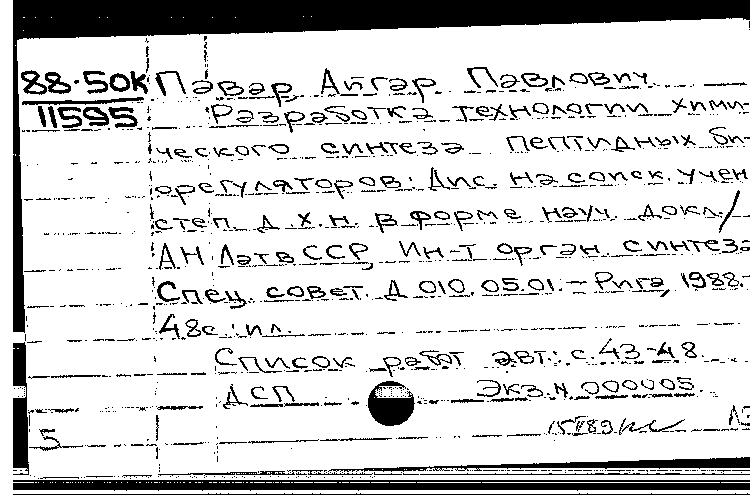 88-50к Павар, Айгар Павлович
11595 Разработка технологии хими-
ческого синтеза пептидных би-
орегуляторов: Дис. на соиск. учен
степ. д.х.н. в форме науч. докл./
АН ЛатвССР, Ин-т орган. синтеза
Спец. совет. Д 010.05.01.- Рига, 1988.-
48с.: ил.
Список работ авт.: с.43-48
ДСП Экз.N 000005.
5